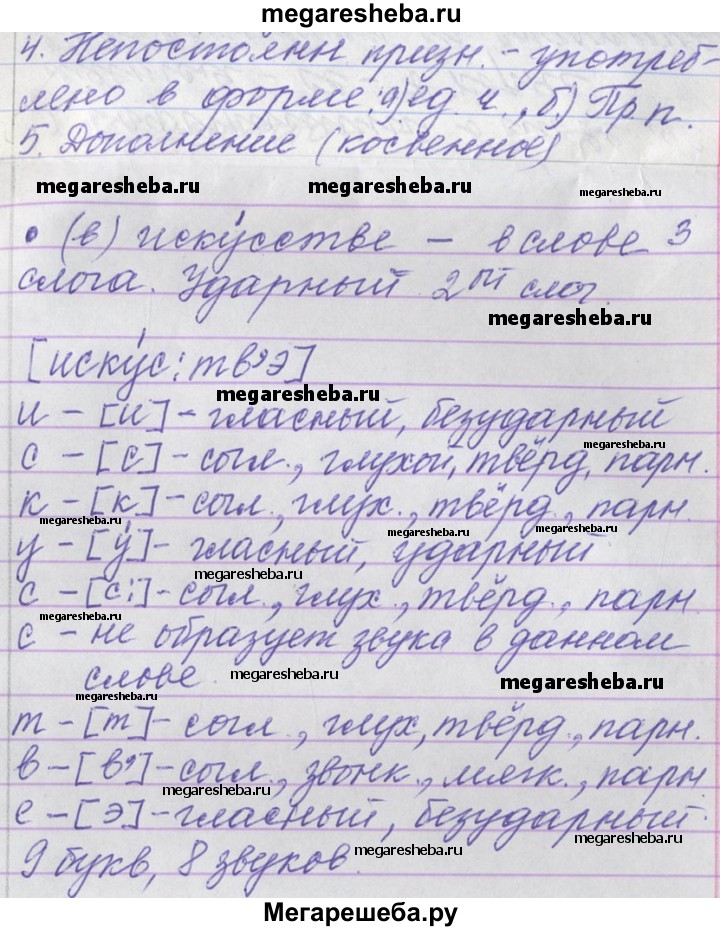 megaresheba.ru
4. Непостоянн призн. - употреб-
лено в форме: а) ед. ч., б) Пр. п.
5. Дополнение (косвенное)
megaresheba.ru megaresheba.ru megaresheba.ru
• (в) иску́сстве - в слове 3
слога. Ударный 2ой слог.
megaresheba.ru
[иску́с:тв'э]
megaresheba.ru
и - [и] - гласный, безударный
с - [с] - согл., глухой, твёрд, парн.
megaresheba.ru
к - [к] - согл., глух., твёрд., парн.
megaresheba.ru megaresheba.ru megaresheba.ru
у - [у́] - гласный, ударный
megaresheba.ru
с - [с:] - согл., глух., твёрд., парн.
megaresheba.ru
с - не образует звука в данном
слове. megaresheba.ru megaresheba.ru
т - [т] - согл., глух, твёрд., парн.
в - [в'] - согл., звонк., мягк., парн.
megaresheba.ru megaresheba.ru
е - [э] - гласный, безударный.
9 букв, 8 звуков.
megaresheba.ru megaresheba.ru
Мегарешеба.ру